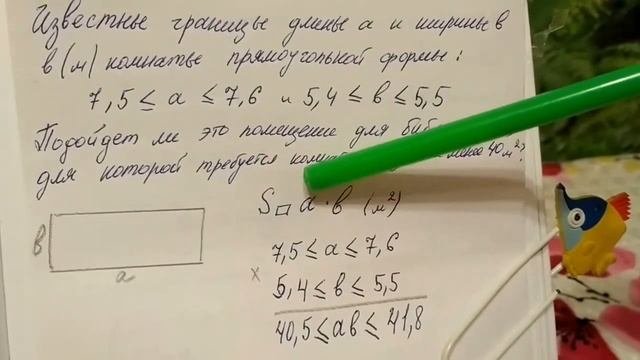 Известные границы длины а и ширины в
в (м) комнаты прямоугольной формы:
7,5 ≤ a ≤ 7,6 и 5,4 ≤ в ≤ 5,5
Подойдет ли это помещение для
для которой требуется 40 м²?
S▭ a · в (м²)
7,5 ≤ a ≤ 7,6
×
5,4 ≤ в ≤ 5,5
40,5 ≤ aв ≤ 41,8
в
a